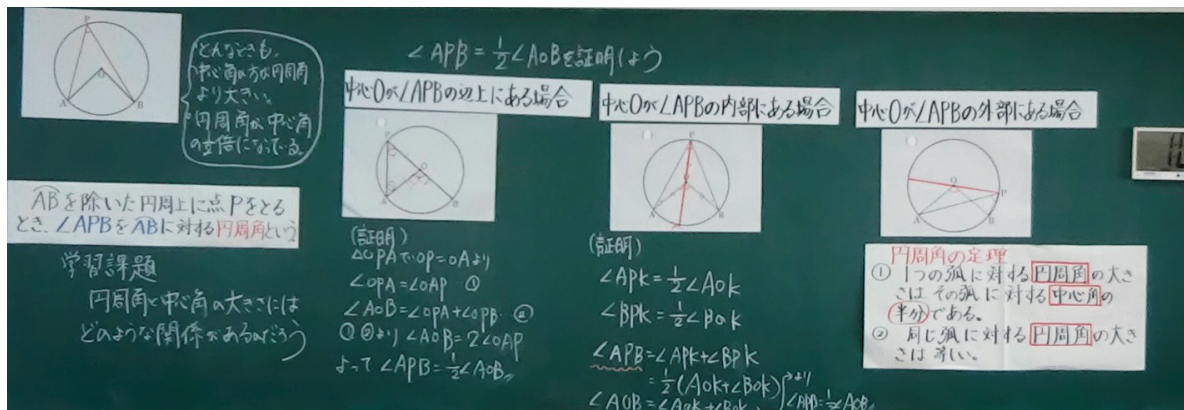 どんなときも、
中心角の方が円周角
より大きい。
円周角が中心角
の1/2倍になっている。
ABを除いた円周上に点Pをとる
とき、∠APBをABに対する円周角という
学習課題
円周角と中心角の大きさには
どのような関係があるのだろう
∠APB=1/2∠AOBを証明しよう
中心Oが∠APBの辺上にある場合
(証明)
△OPAでOP=OAより
∠OPA=∠OAP ①
∠AOB=∠OPA+∠OPB ②
①②より∠AOB=2∠OAP
よって ∠APB=1/2∠AOB〃
中心Oが∠APBの内部にある場合
(証明)
∠APK=1/2∠AOK
∠BPK=1/2∠BOK
∠APB=∠APK+∠BPK
=1/2(AOK+∠BOK)
∠AOB=∠AOK+∠BOK
より
∠APB=1/2∠AOB〃
中心Oが∠APBの外部にある場合
円周角の定理
① 1つの弧に対する円周角の大き
さは その弧に対する中心角の
半分である。
② 同じ弧に対する円周角の大き
さは等しい。
P
O
A
B
P
O
A
B
P
A
B
O
P
A
B